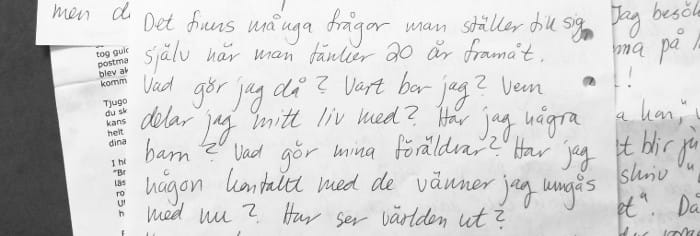 men d
Det finns många frågor man ställer till sig
själv när man tänker 20 år framåt.
Vad gör jag då? Vart bor jag? Vem
delar jag mitt liv med? Har jag några
barn? Vad gör mina föräldrar? Har jag
någon kontakt med de vänner jag umgås
med nu? Hur ser världen ut?
postma
blev ak
komm
Tjugo
du sk
kans
helt
dina
I h
"Br
läs
ro
Jag besök
ma på
!
a han,"
t blir ju
skriv "
et". Da